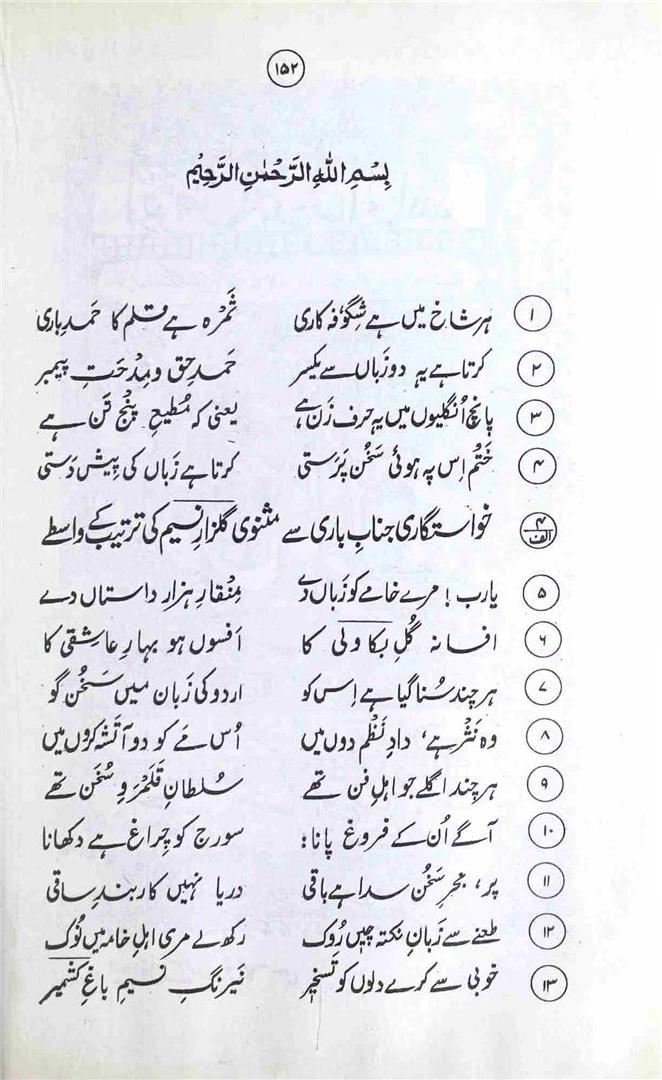 ۱۵۲
بِسْمِ اللهِ الرَّحْمٰنِ الرَّحِيْمِ
۱ ہر شاخ میں ہے شِگوٗفہ کاری ثَمَرہ ہے قلم کا حَمدِ باری
۲ کرتا ہے یہ دو زَباں سے یکسر حَمدِ حق و مِدْحَتِ پیمبر
۳ پانچ اُنگلیوں میں یہ حرف زَن ہے یعنی کہ مُطیعِ پَنْج تَن ہے
۴ خَتْم اِس پہ ہوئی سَخُن پَرَستی کرتا ہے زَباں کی پیش دَستی
۴ الف خواستگاری جنابِ باری سے مثنوی گلزارِ نسیم کی ترتیب کے واسطے
۵ یارب ! مرے خامے کو زَباں دے مِنْقارِ ہزار داستاں دے
۶ افسانہ گُلِ بکاولی کا اَفسوں ہو بہارِ عاشقی کا
۷ ہر چند سُنا گیا ہے اِس کو اردو کی زَبان میں سَخُن گو
۸ وہ نَثْر ہے، دادِ نَظْم دوں میں اُس مَے کو دو آتَشہ کروں میں
۹ ہر چند اگلے جو اہلِ فن تھے سُلطانِ قَلَمْرَوِ سُخَن تھے
۱۰ آگے اُن کے فروغ پانا: سورج کو چراغ ہے دکھانا
۱۱ پر، بحرِ سَخُن سدا ہے باقی دریا نہیں کاربندِ ساقی
۱۲ طعنے سے زَبانِ نکتہ چیں رُوک رکھ لے مری اہلِ خامہ میں نُوک
۱۳ خوبی سے کرے دلوں کو تَسْخیر نَیرنگِ نسیمِ باغِ کشمیر